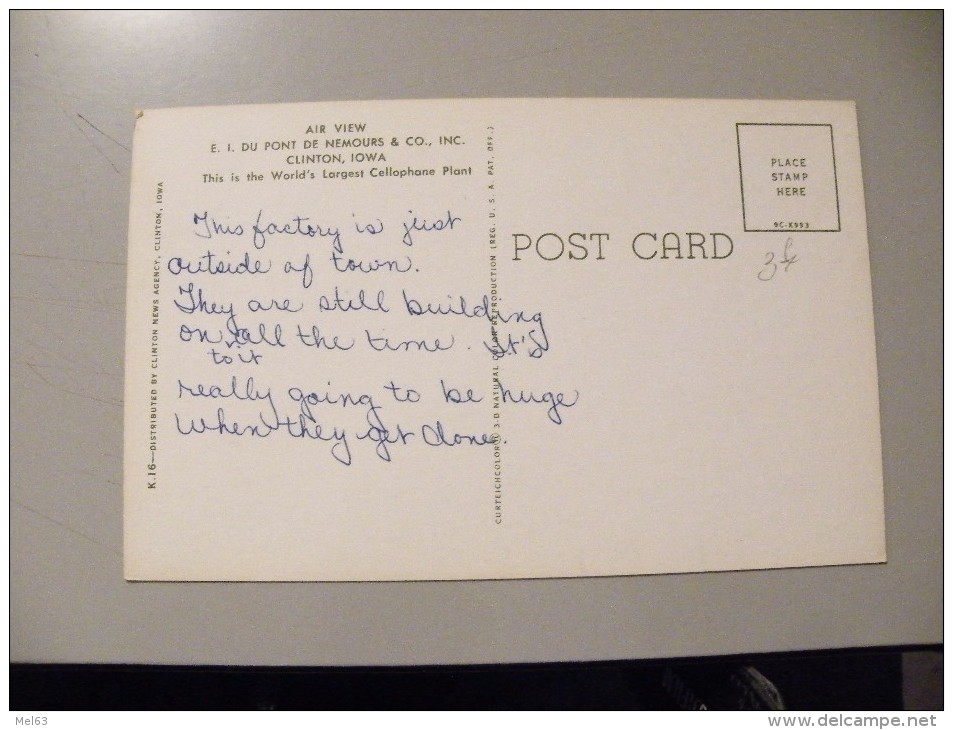 AIR VIEW
E. I. DU PONT DE NEMOURS & CO., INC.
CLINTON, IOWA
This is the World's Largest Cellophane Plant
This factory is just
outside of town.
They are still building
on all the time. It's
to it
really going to be huge
when they get done.
K.16—DISTRIBUTED BY CLINTON NEWS AGENCY, CLINTON, IOWA
CURTEICHCOLOR® 3-D NATURAL COLOR REPRODUCTION (REG. U. S. A. PAT. OFF.)
POST CARD
PLACE
STAMP
HERE
9C-K993
Mel63
www.delcampe.net